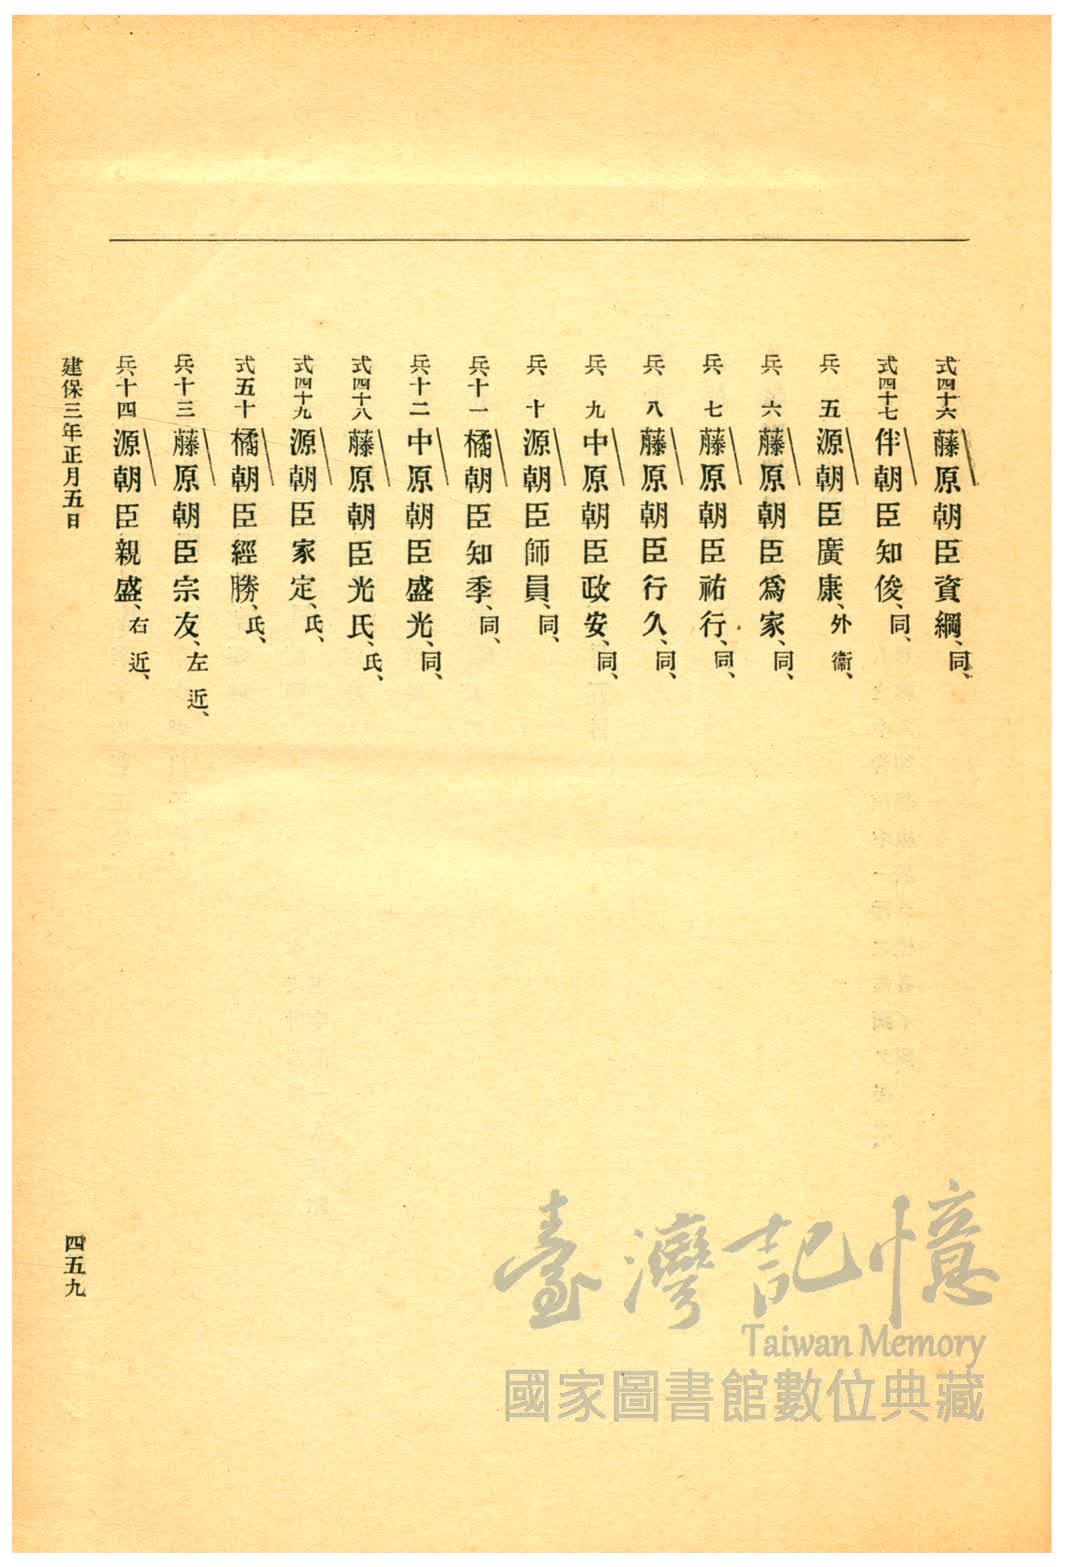 式四十六藤原朝臣資綱、同、
式四十七伴朝臣知俊、同、
兵五源朝臣廣康、外衞、
兵六藤原朝臣爲家、同、
兵七藤原朝臣祐行、同、
兵八藤原朝臣行久、同、
兵九中原朝臣政安、同、
兵十源朝臣師員、同、
兵十一橘朝臣知季、同、
兵十二中原朝臣盛光、同、
式四十八藤原朝臣光氏、氏、
式四十九源朝臣家定、氏、
式五十橘朝臣經勝、氏、
兵十三藤原朝臣宗友、左近、
兵十四源朝臣親盛、右近、
建保三年正月五日
四五九
臺灣記憶
Taiwan Memory
國家圖書館數位典藏